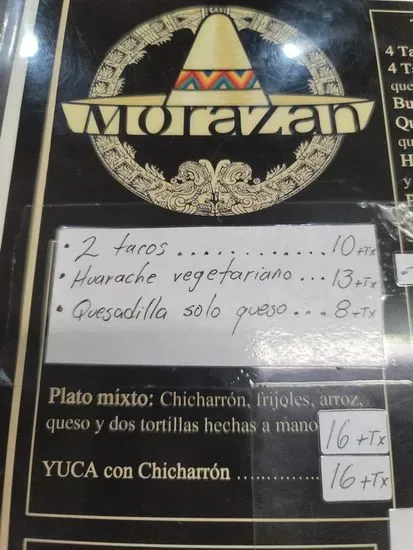 Morazán
• 2 tacos ............ 10+Tx
• Huarache vegetariano ... 13+Tx
• Quesadilla solo queso ... 8+Tx
Plato mixto: Chicharrón, frijoles, arroz,
queso y dos tortillas hechas a mano 16+Tx
YUCA con Chicharrón .............. 16+Tx
4 Ta
4 Ta
que
Bu
Qu
qu
H
y